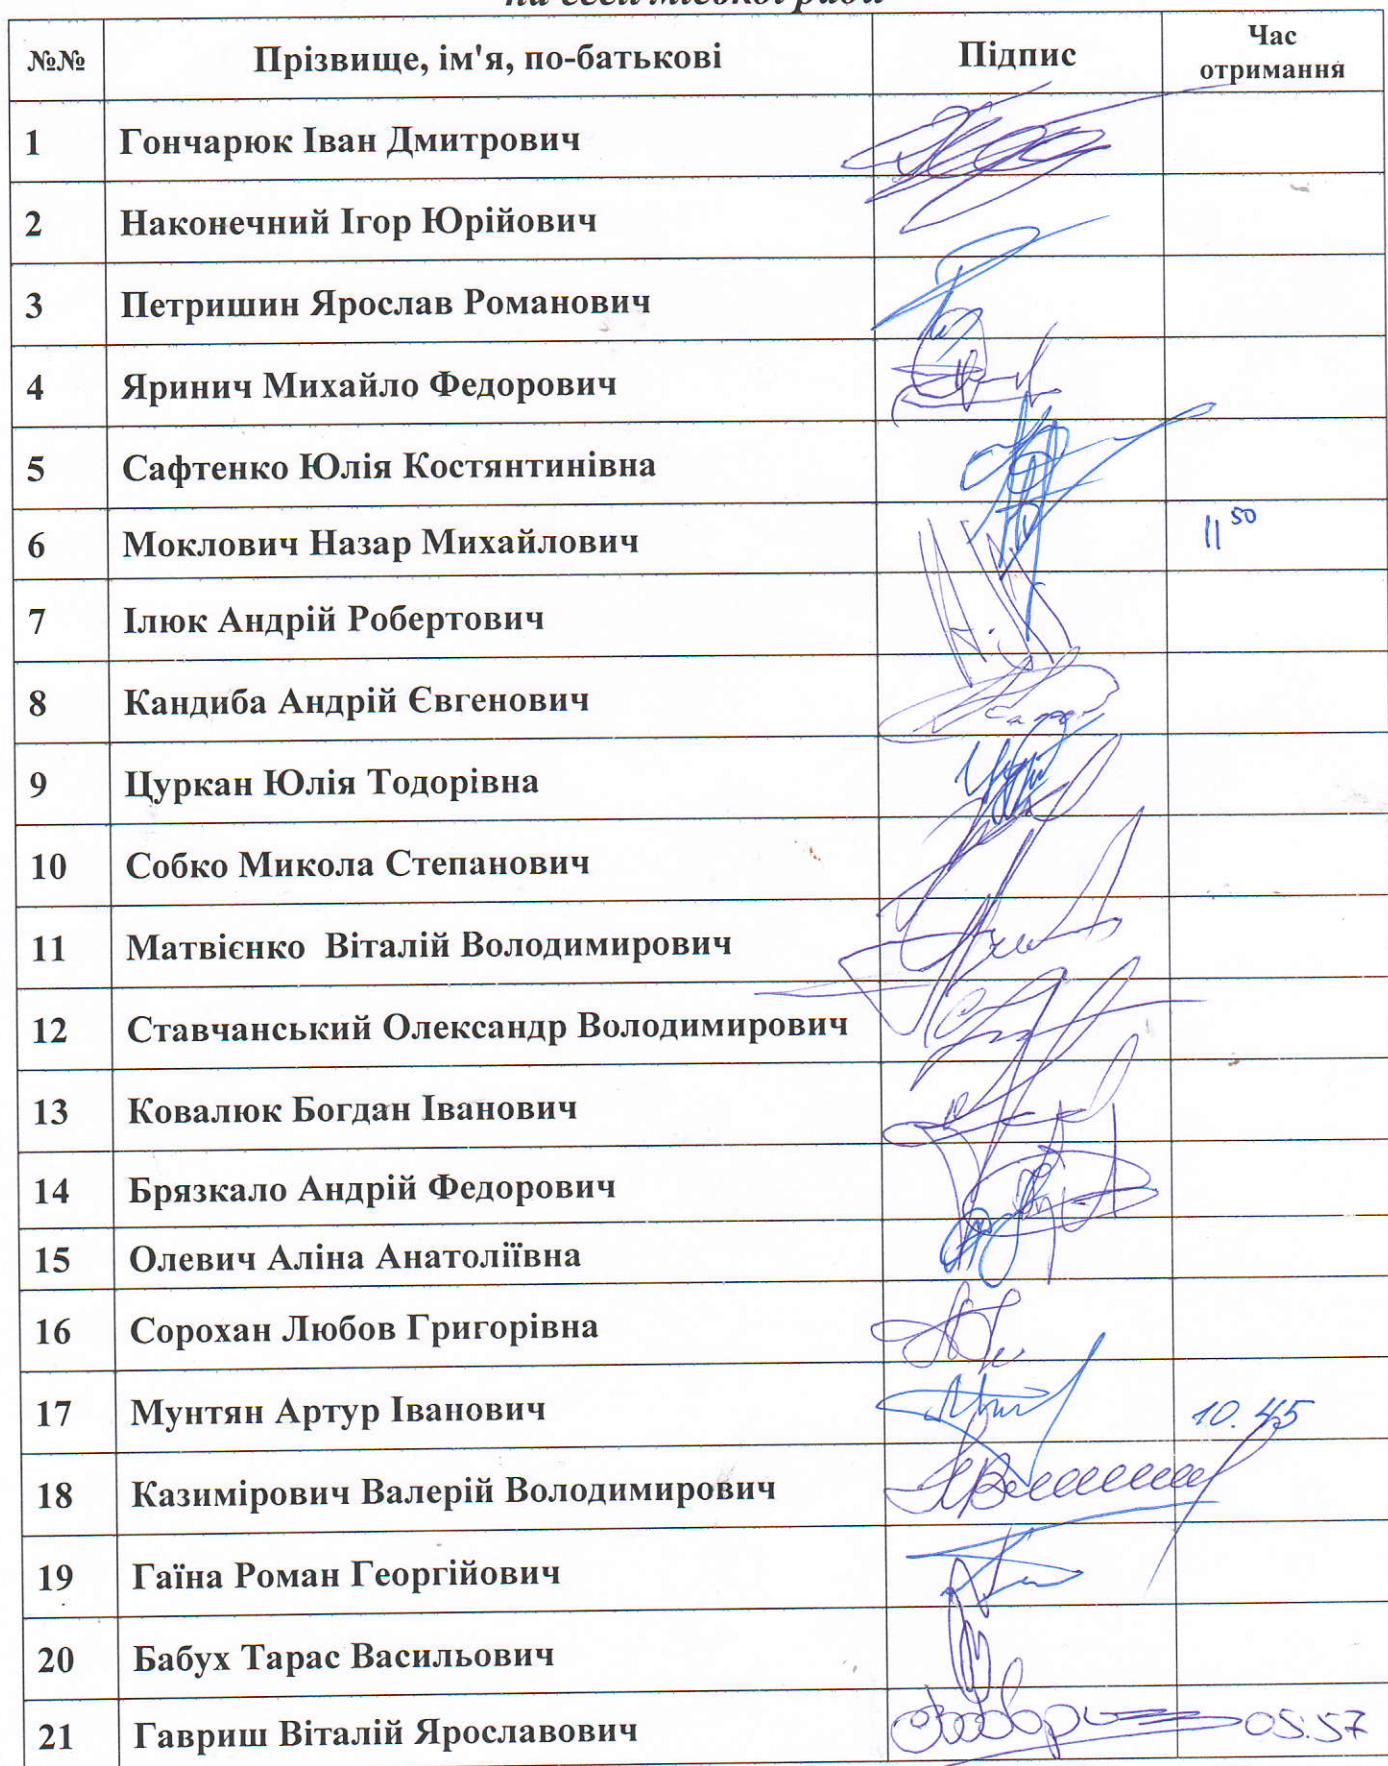 на сесії міської ради
№№ Прізвище, ім'я, по-батькові Підпис Час отримання
1 Гончарюк Іван Дмитрович
2 Наконечний Ігор Юрійович
3 Петришин Ярослав Романович
4 Яринич Михайло Федорович
5 Сафтенко Юлія Костянтинівна
6 Моклович Назар Михайлович 11 50
7 Ілюк Андрій Робертович
8 Кандиба Андрій Євгенович
9 Цуркан Юлія Тодорівна
10 Собко Микола Степанович
11 Матвієнко Віталій Володимирович
12 Ставчанський Олександр Володимирович
13 Ковалюк Богдан Іванович
14 Брязкало Андрій Федорович
15 Олевич Аліна Анатоліївна
16 Сорохан Любов Григорівна
17 Мунтян Артур Іванович 10.45
18 Казимірович Валерій Володимирович
19 Гаїна Роман Георгійович
20 Бабух Тарас Васильович
21 Гавриш Віталій Ярославович 05:57